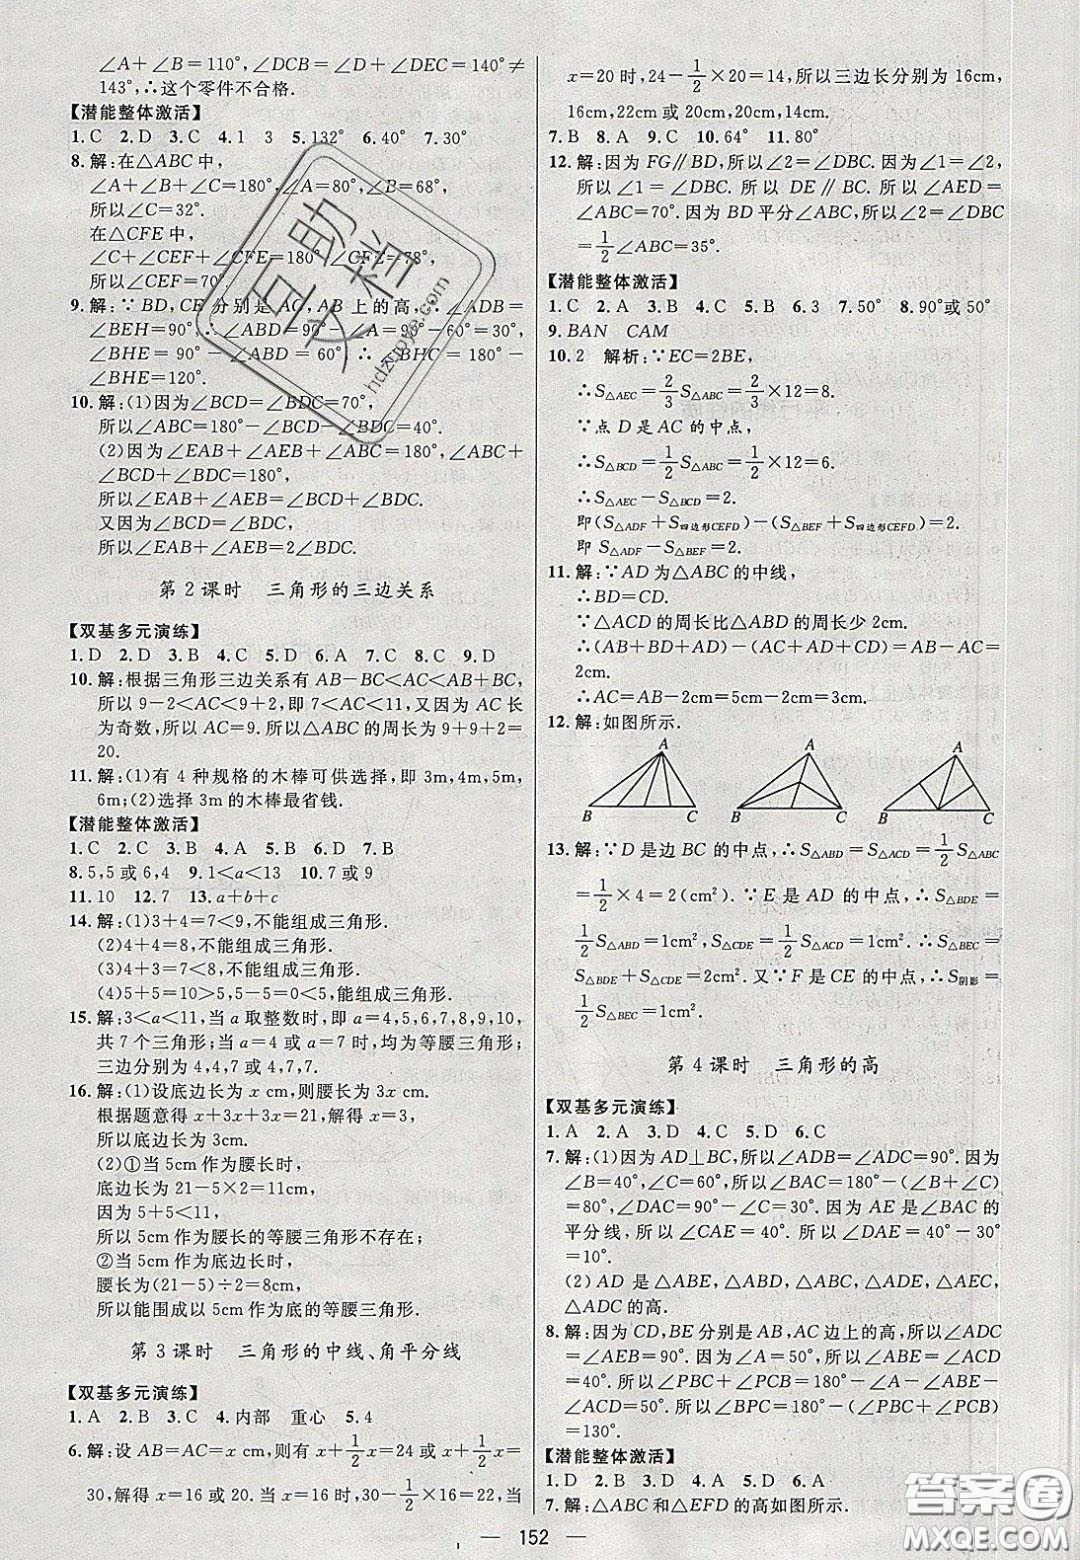 ∠A＋∠B＝110°,∠DCB＝∠D＋∠DEC＝140°≠
143°,∴这个零件不合格.
【潜能整体激活】
1.C 2.D 3.C 4.1 3 5.132° 6.40° 7.30°
8.解:在△ABC中,
∠A＋∠B＋∠C＝180°,∠A＝80°,∠B＝68°,
所以∠C＝32°.
在△CFE中,
∠C＋∠CEF＋∠CFE＝180°,∠CFE＝78°,
所以∠CEF＝70°.
9.解:∵BD,CE分别是AC,AB上的高,∴∠ADB＝
∠BEH＝90°,∴∠ABD＝90°－∠A＝90°－60°＝30°,
∴∠BHE＝90°－∠ABD＝60°,∴∠BHC＝180°－
∠BHE＝120°.
10.解:(1)因为∠BCD＝∠BDC＝70°,
所以∠ABC＝180°－∠BCD－∠BDC＝40°.
(2)因为∠EAB＋∠AEB＋∠ABE＝180°,∠ABC＋
∠BCD＋∠BDC＝180°,
所以∠EAB＋∠AEB＝∠BCD＋∠BDC.
又因为∠BCD＝∠BDC,
所以∠EAB＋∠AEB＝2∠BDC.
第2课时 三角形的三边关系
【双基多元演练】
1.D 2.D 3.B 4.C 5.D 6.A 7.C 8.C 9.D
10.解:根据三角形三边关系有AB－BC＜AC＜AB＋BC,
所以9－2＜AC＜9＋2,即7＜AC＜11,又因为AC长
为奇数,所以AC＝9.所以△ABC的周长为9＋9＋2＝
20.
11.解:(1)有4种规格的木棒可供选择,即3m,4m,5m,
6m;(2)选择3m的木棒最省钱.
【潜能整体激活】
1.C 2.C 3.B 4.A 5.B 6.D 7.B
8.5,5或6,4 9.1＜a＜13 10.7或9
11.10 12.7 13.a＋b＋c
14.解:(1)3＋4＝7＜9,不能组成三角形.
(2)4＋4＝8,不能组成三角形.
(3)4＋3＝7＜8,不能组成三角形.
(4)5＋5＝10＞5,5－5＝0＜5,能组成三角形.
15.解:3＜a＜11,当a取整数时,即a＝4,5,6,7,8,9,10,
共7个三角形;当a＝4或a＝7时,均为等腰三角形;
三边分别为4,4,7或4,7,7.
16.解:(1)设底边长为x cm,则腰长为3x cm.
根据题意得x＋3x＋3x＝21,解得x＝3.
所以底边长为3cm.
(2)①当5cm作为腰长时,
底边长为21－5×2＝11,
因为5＋5＜11,
所以5cm作为腰长的三角形不存在;
②当5cm作为底边长时,
腰长为(21－5)÷2＝8cm,
所以能围成以5cm作为底的等腰三角形.
第3课时 三角形的中线、角平分线
【双基多元演练】
1.A 2.B 3.C 4.内部 重心 5.4
6.解:设AB＝AC＝x cm,则有x＋1/2x＝24或x＋1/2x＝
30,解得x＝16或20.当x＝16时,30－1/2×16＝22,当
x＝20时,24－1/2×20＝14,所以三边长分别为16cm,
16cm,22cm或20cm,20cm,14cm.
7.B 8.A 9.C 10.64° 11.80°
12.解:因为FG∥BD,所以∠2＝∠DBC.因为∠1＝∠2,
所以∠1＝∠DBC.所以DE∥BC.所以∠AED＝
∠ABC＝70°.因为BD平分∠ABC,所以∠DBC
＝1/2∠ABC＝35°.
【潜能整体激活】
1.C 2.A 3.B 4.C 5.B 6.3 7.50° 8.90°或50°
9.BAN CAM
10.2 解析:∵EC＝2BE,
∴S△AEC＝2/3S△ABC＝2/3×12＝8.
∵点D是AC的中点,
∴S△BCD＝1/2S△ABC＝1/2×12＝6.
∴S△AEC－S△BCD＝2.
即(S△ADF＋S四边形CEFD)－(S△BEF＋S四边形CEFD)＝2.
即S△ADF－S△BEF＝2.
11.解:∵AD为△ABC的中线,
∴BD＝CD.
∵△ACD的周长比△ABD的周长少2cm.
∴(AB＋BD＋AD)－(AC＋AD＋CD)＝AB－AC＝
2cm.
∴AC＝AB－2cm＝5cm－2cm＝3cm.
12.解:如图所示.
A A A
B C B C B C
13.解:∵D是边BC的中点,∴S△ABD＝S△ACD＝1/2S△ABC
＝1/2×4＝2(cm²).∵E是AD的中点,∴S△BDE＝
1/2S△ABD＝1cm²,S△CDE＝1/2S△ACD＝1cm².∴S△BEC＝
S△BDE＋S△CDE＝2cm².又∵F是CE的中点,∴S阴影＝
1/2S△BEC＝1cm².
第4课时 三角形的高
【双基多元演练】
1.A 2.A 3.D 4.C 5.D 6.C
7.解:(1)因为AD⊥BC,所以∠ADB＝∠ADC＝90°.因为
∠B＝40°,∠C＝60°,所以∠BAC＝180°－(∠B＋∠C)
＝80°,∠DAC＝90°－∠C＝30°.因为AE是∠BAC的
平分线,所以∠CAE＝40°.所以∠DAE＝40°－30°
＝10°.
(2)AD是△ABE,△ABD,△ABC,△ADE,△AEC,
△ADC的高.
8.解:因为CD,BE分别是AB,AC边上的高,所以∠BDC
＝∠BEA＝90°.因为∠A＝50°,所以∠ABC＋∠ACB＝
180°－∠A＝130°.所以∠PBC＋∠PCB＝180°－
∠BDC＋180°－∠BEC－(∠PBC＋∠PCB)＝
50°.所以∠BPC＝180°－(∠PBC＋∠PCB)＝
130°.
【潜能整体激活】
1.D 2.B 3.A 4.D 5.D 6.A
7.解:△ABC和△EFD的高如图所示.
152
互助文档
hdzuoye.com
答案圈
MXQE.COM